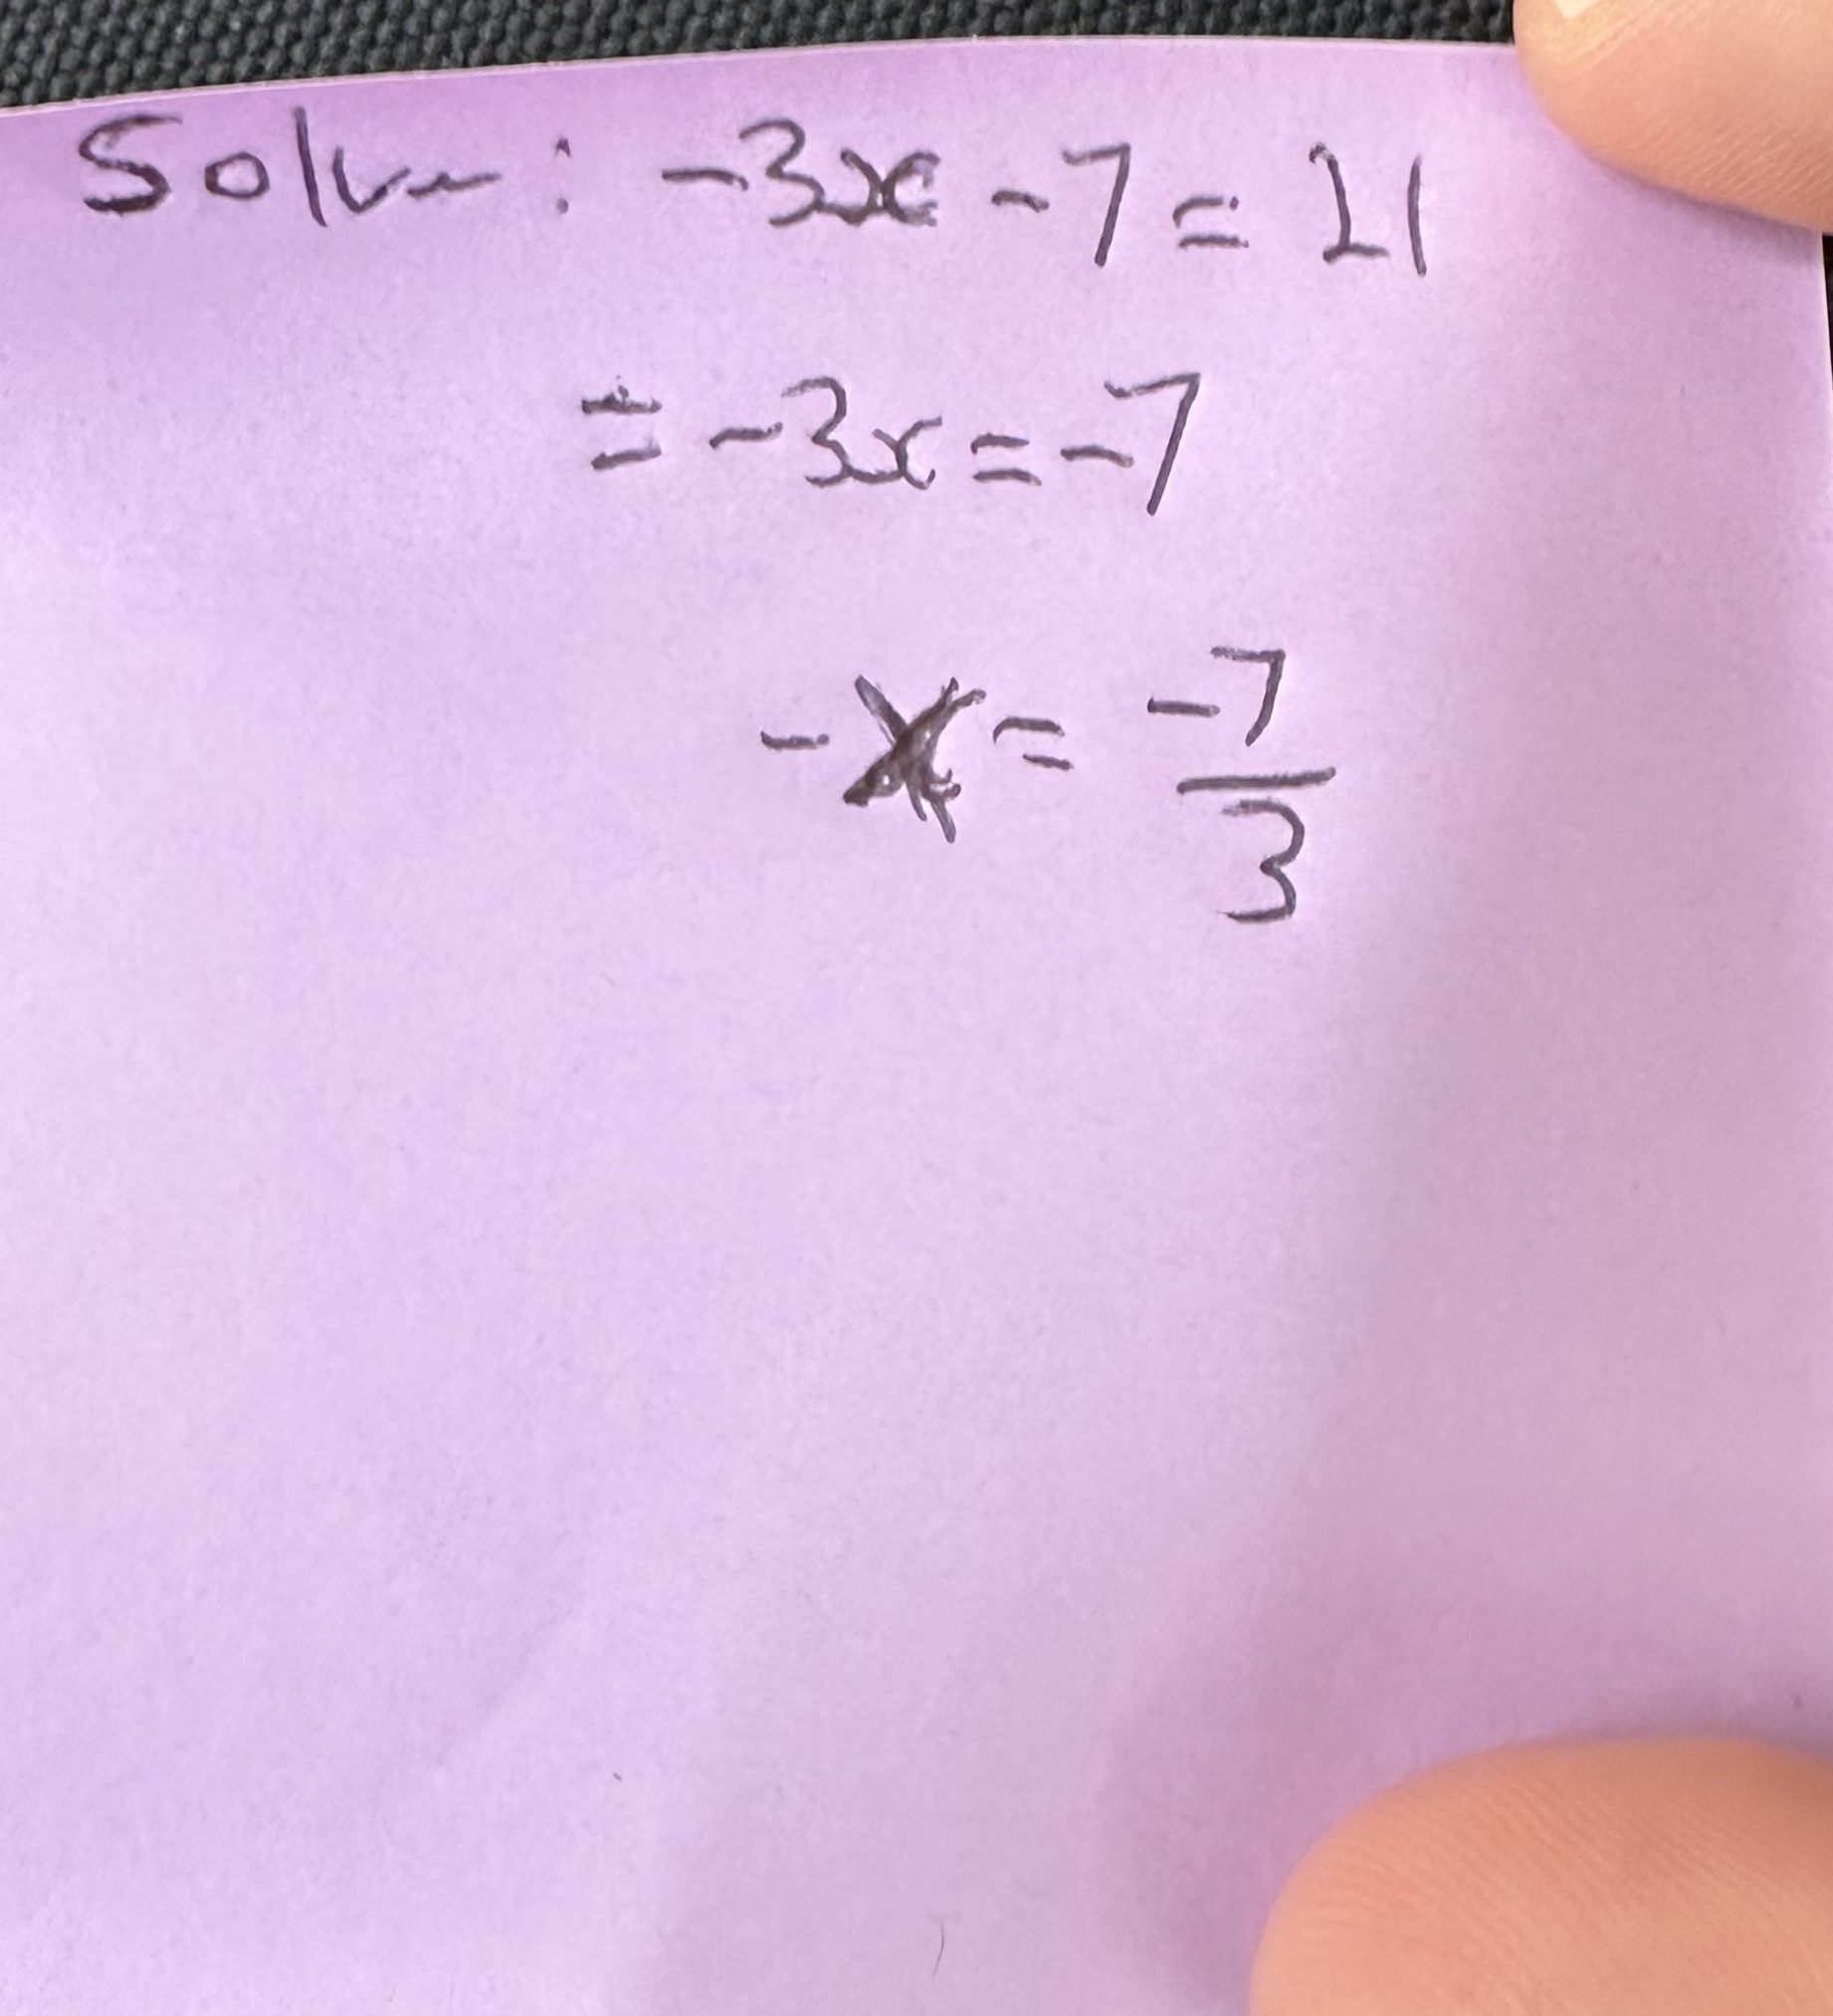 Solve: -3x - 7 = 21
= -3x = -7
-x = -7/3